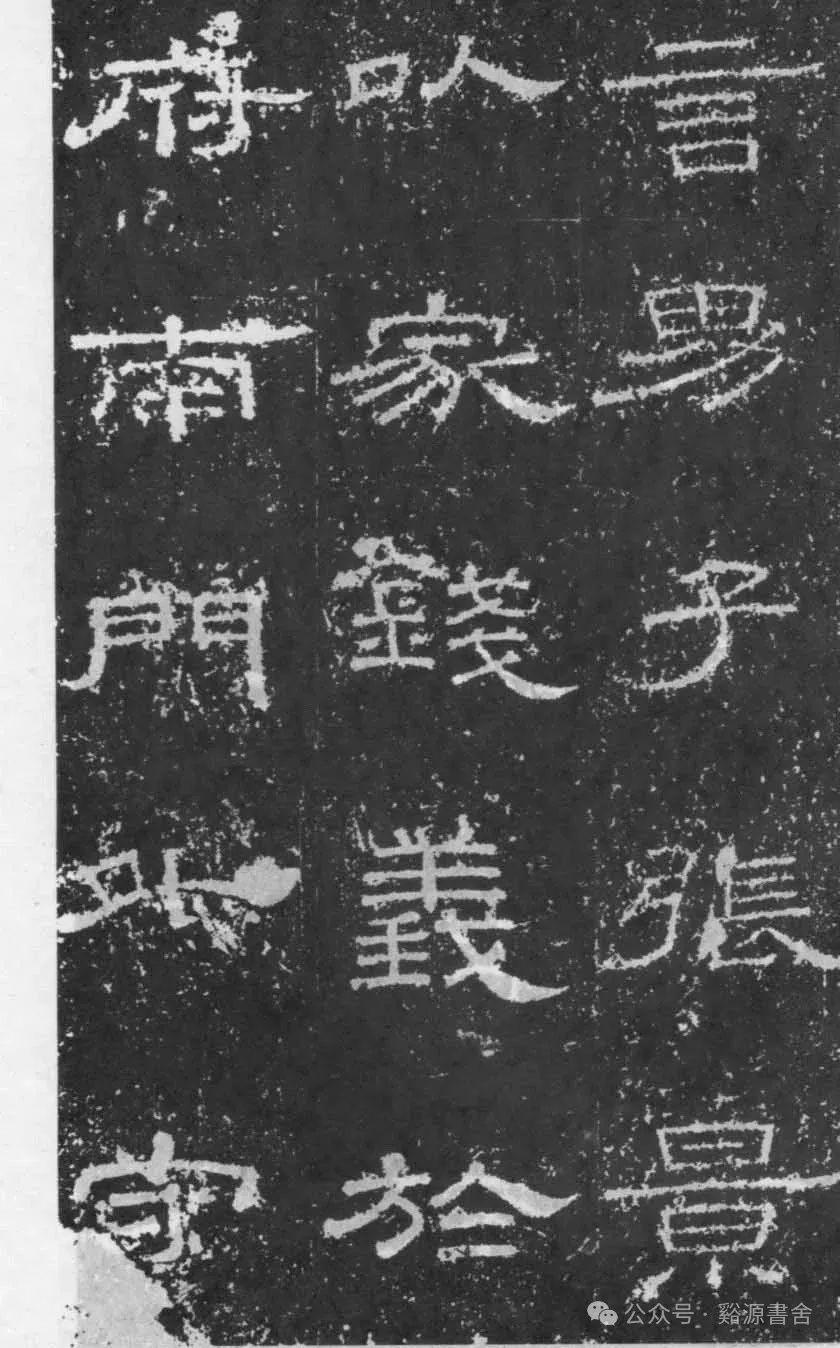 言男子張景
以家錢義於
府南門外守
公众号 · 谿源書舍